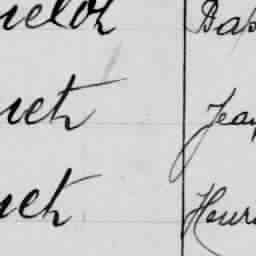 uelot Bap
uet Jean
uet Henri